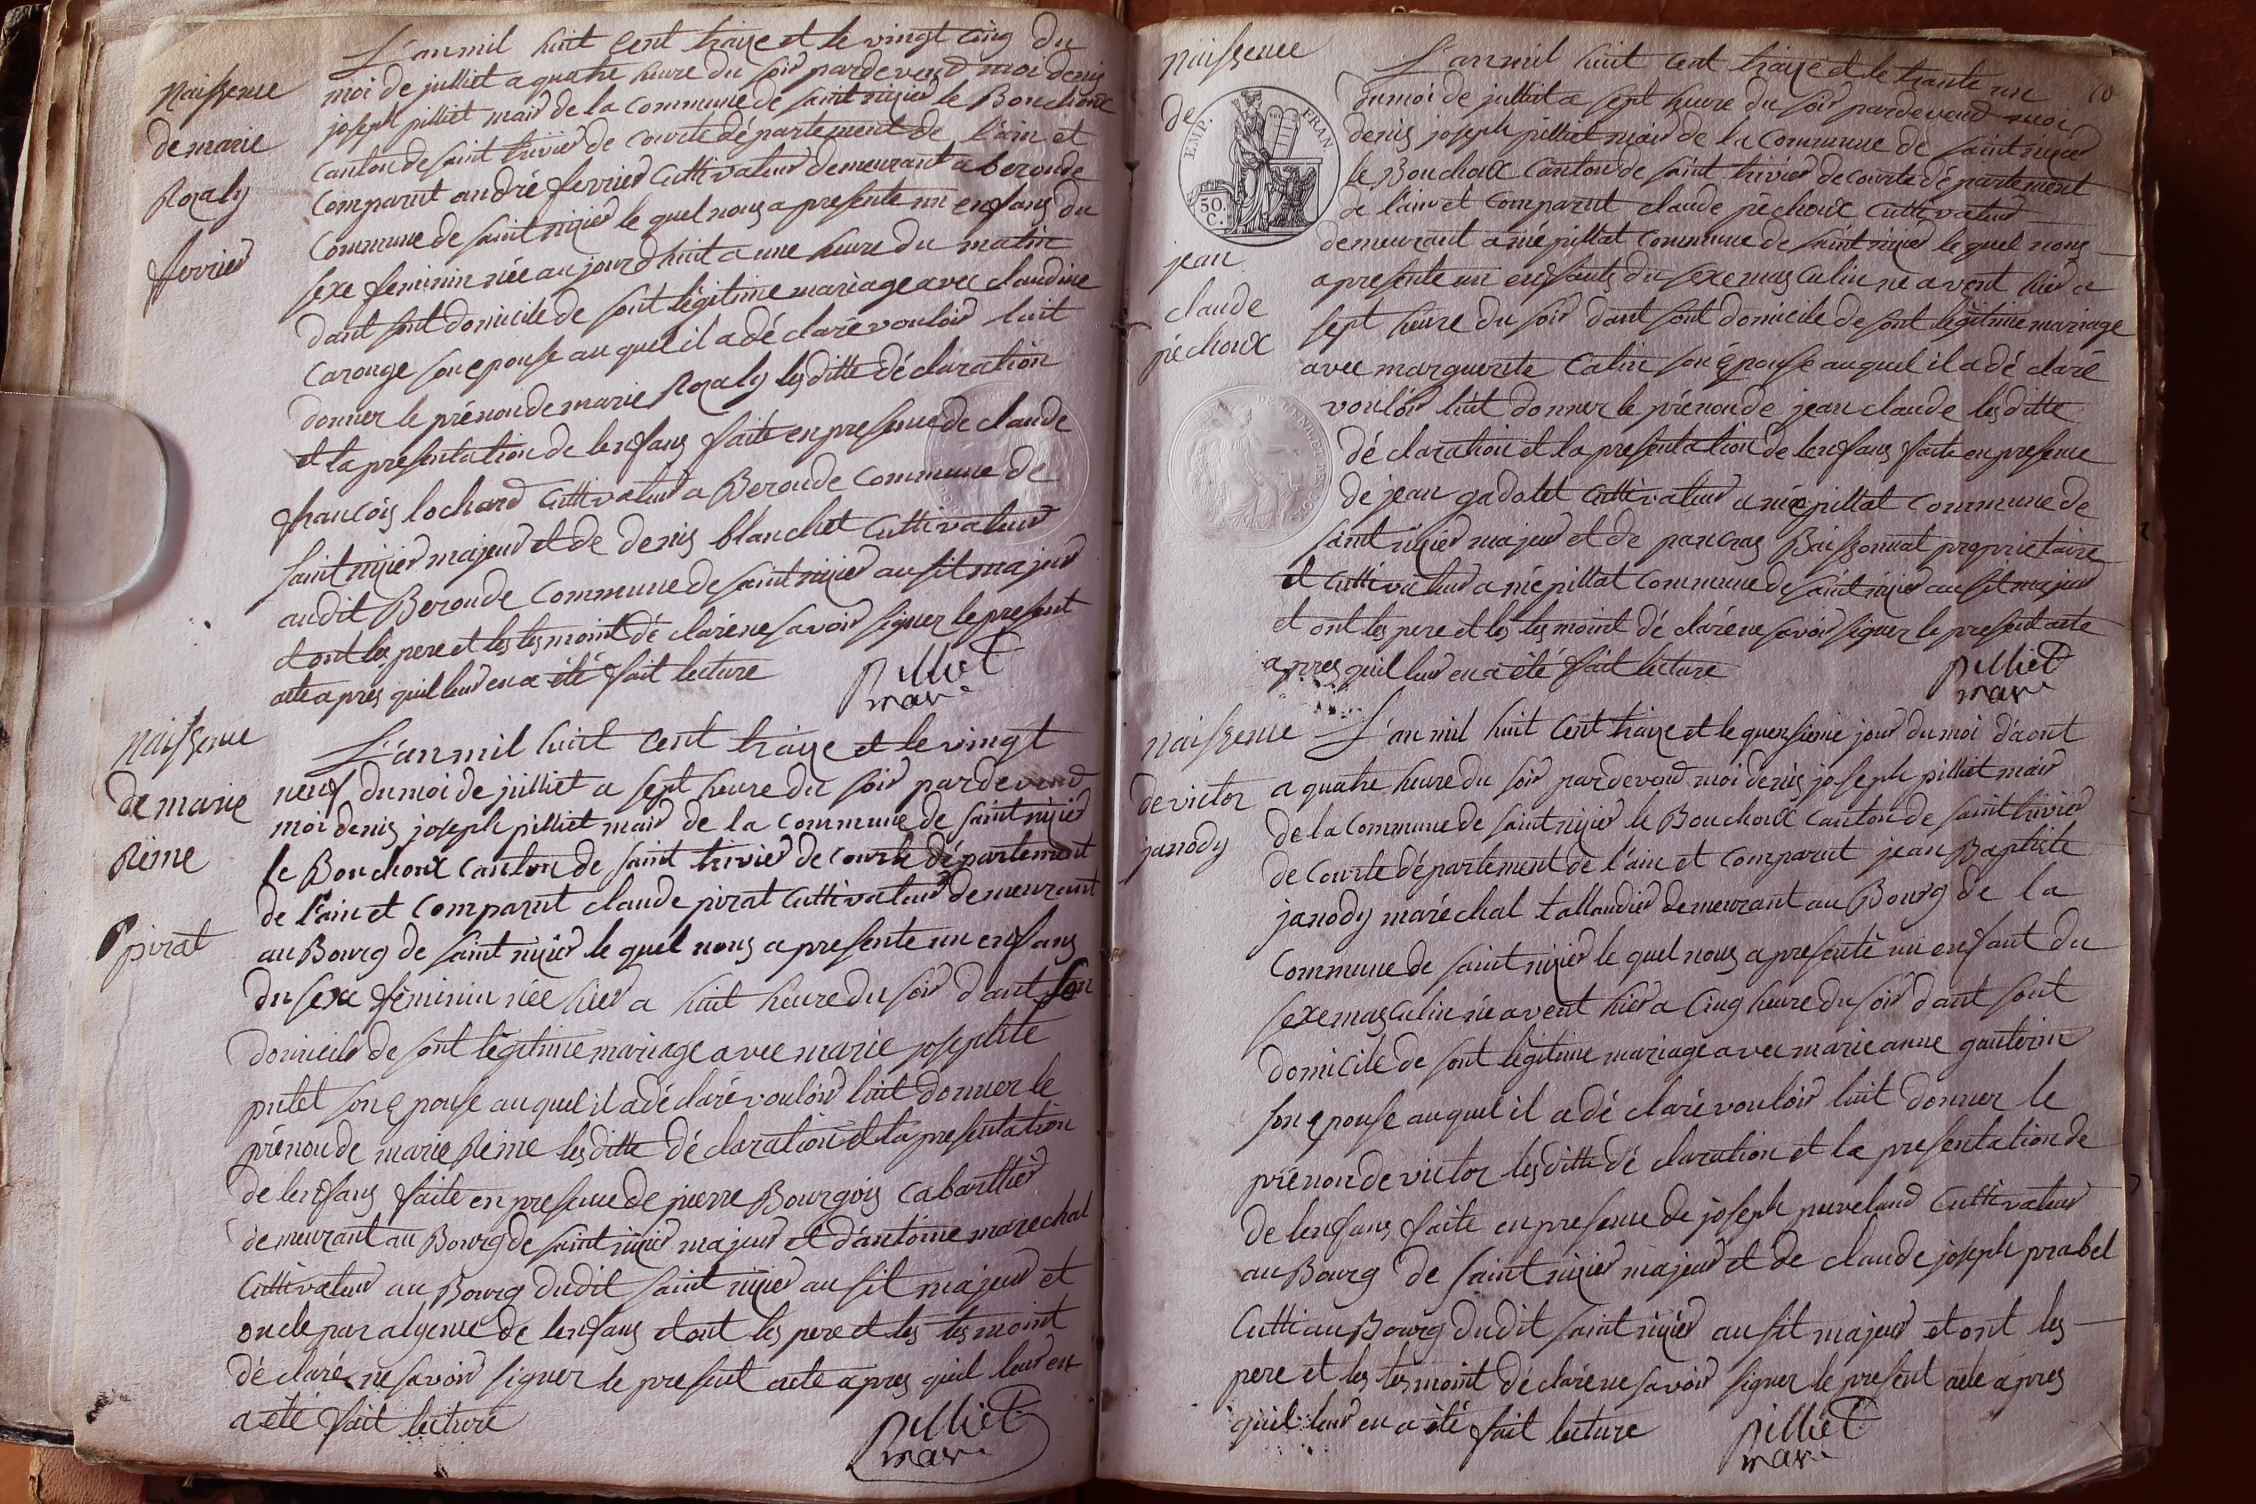 Naissence
de marie
Rozaly
ferrier
L'an mil huit cent traize et le vingt cinq du
moi de julliet a quatre heure du soir pardevend moi denis
joseph pilliet mair de la commune de saint nizier le Bouchoux
canton de saint trivier de courte département de l'ain et
comparut andré ferrier cultivateur demeurant a beronde
commune de saint nizier le quel nous a presente un enfans du
sexe feminin née aujourdhuit a une heure du matin
dant sont domicile de sont légitime mariage avec claudine
caronge son epouse au quel il a dé claré vouloir luit
donner le prénon de marie Rozaly lesditte déclaration
et la presentation de lenfans faite en presence de claude
francois lochard cultivateur a Beronde commune de
saint nizier majeur et de denis blanchet cultivateur
audit Beronde commune de saint nizier ausit majeur
et ont les pere et les tesmoint dé claré ne savoir signer le present
acte apres quil leur en a été fait lecture
Pilliet
mair
Naissence
de marie
Reine
pirat
L'an mil huit cent traize et le vingt
neuf du moi de juilliet a sept heure du soir pardevend
moi denis joseph pilliet mair de la commune de saint nizier
le Bouchoux canton de saint trivier de courte département
de l'ain et comparut claude pirat cultivateur demeurant
au Bourg de saint nizier le quel nous a presenté un enfans
du sexe féminin née hier a huit heure du soir dant son
domicile de sont légitime mariage avec marie josephte
putet son epouse au quel il a dé claré vouloir luit donner le
prénon de marie Reine lesditte déclaration et la presentation
de lenfans faite en presence de pierre Bourgois cabarttier
demeurant au Bourg de saint nizier majeur et d'antoine marechal
cultivateur au Bourg dudit saint nizier ausit majeur et
oncle par alyence de lenfans et ont les pere et les tesmoint
dé claré ne savoir signer le present acte apres quil leur en
a été fait lecture
Pilliet
mair
10
Naissence
de
EMP. FRAN
50. C.
jean
claude
péchoux
L'an mil huit cent traize et le trante un
du moi de julliet a sept heure du soir pardevend moi
denis joseph pilliet mair de la commune de saint nizier
le Bouchoux canton de saint trivier de courte département
de l'ain et comparut claude péchoux cultivateur
demeurant a mépillat commune de saint nizier le quel nous
a presente un enfants du sexe masculin né avent hier a
sept heure du soir dant sont domicile de sont légitime mariage
avec marguerite catin son epouse auquel il a dé claré
vouloir luit donner le prénon de jean claude lesditte
dé claration et la presentation de lenfans faite en presence
de jean gadolet cultivateur a mépillat commune de
saint nizier majeur et de pancras Baissonnat proprietaire
et cultivateur a mépillat commune de saint nizier ausit majeur
et ont les pere et les tesmoint dé claré ne savoir signer le present acte
apres quil leur en a été fait lecture
pilliet
mair
Naissence
de victor
janody
L'an mil huit cent traize et le quensieme jour du moi d'aout
a quatre heure du soir pardevend moi denis joseph pilliet mair
de la commune de saint nizier le Bouchoux canton de saint trivier
de courte département de l'ain et comparut jean Baptiste
janody maréchal tallandier demeurant au Bourg de la
commune de saint nizier le quel nous a presenté un enfant du
sexe masculin né avent hier a cinq heure du soir dant sont
domicile de sont légitime mariage avec marie anne gauterin
son epouse auquel il a dé claré vouloir luit donner le
prénon de victor lesditte dé claration et la presentation de
de lenfans faite en presence de joseph perveland cultivateur
au Bourg de saint nizier majeur et de claude joseph prabel
cultiau Bourg dudit saint nizier ausit majeur et ont les
pere et les tesmoint déclaré ne savoir signer le present acte apres
quil leur en a été fait lecture
pilliet
mair